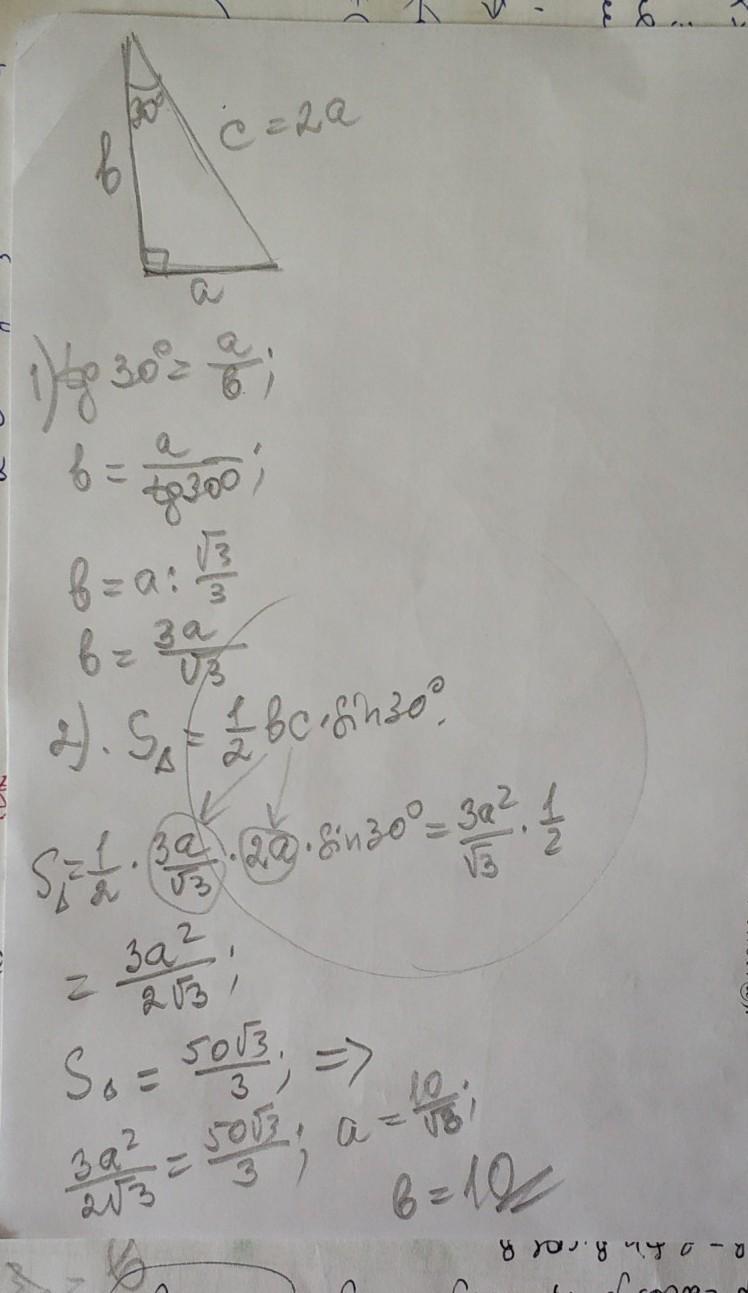 30°
c = 2a
b
a
1) tg 30° = a/b;
b = a/tg30°;
b = a : √3/3
b = 3a/√3
2). S△ = 1/2 bc · sin30°.
S△ = 1/2 · 3a/√3 · 2a · sin30° = 3a²/√3 · 1/2
= 3a²/2√3;
S△ = 50√3/3; =>
3a²/2√3 = 50√3/3; a = 10/√3;
b = 10